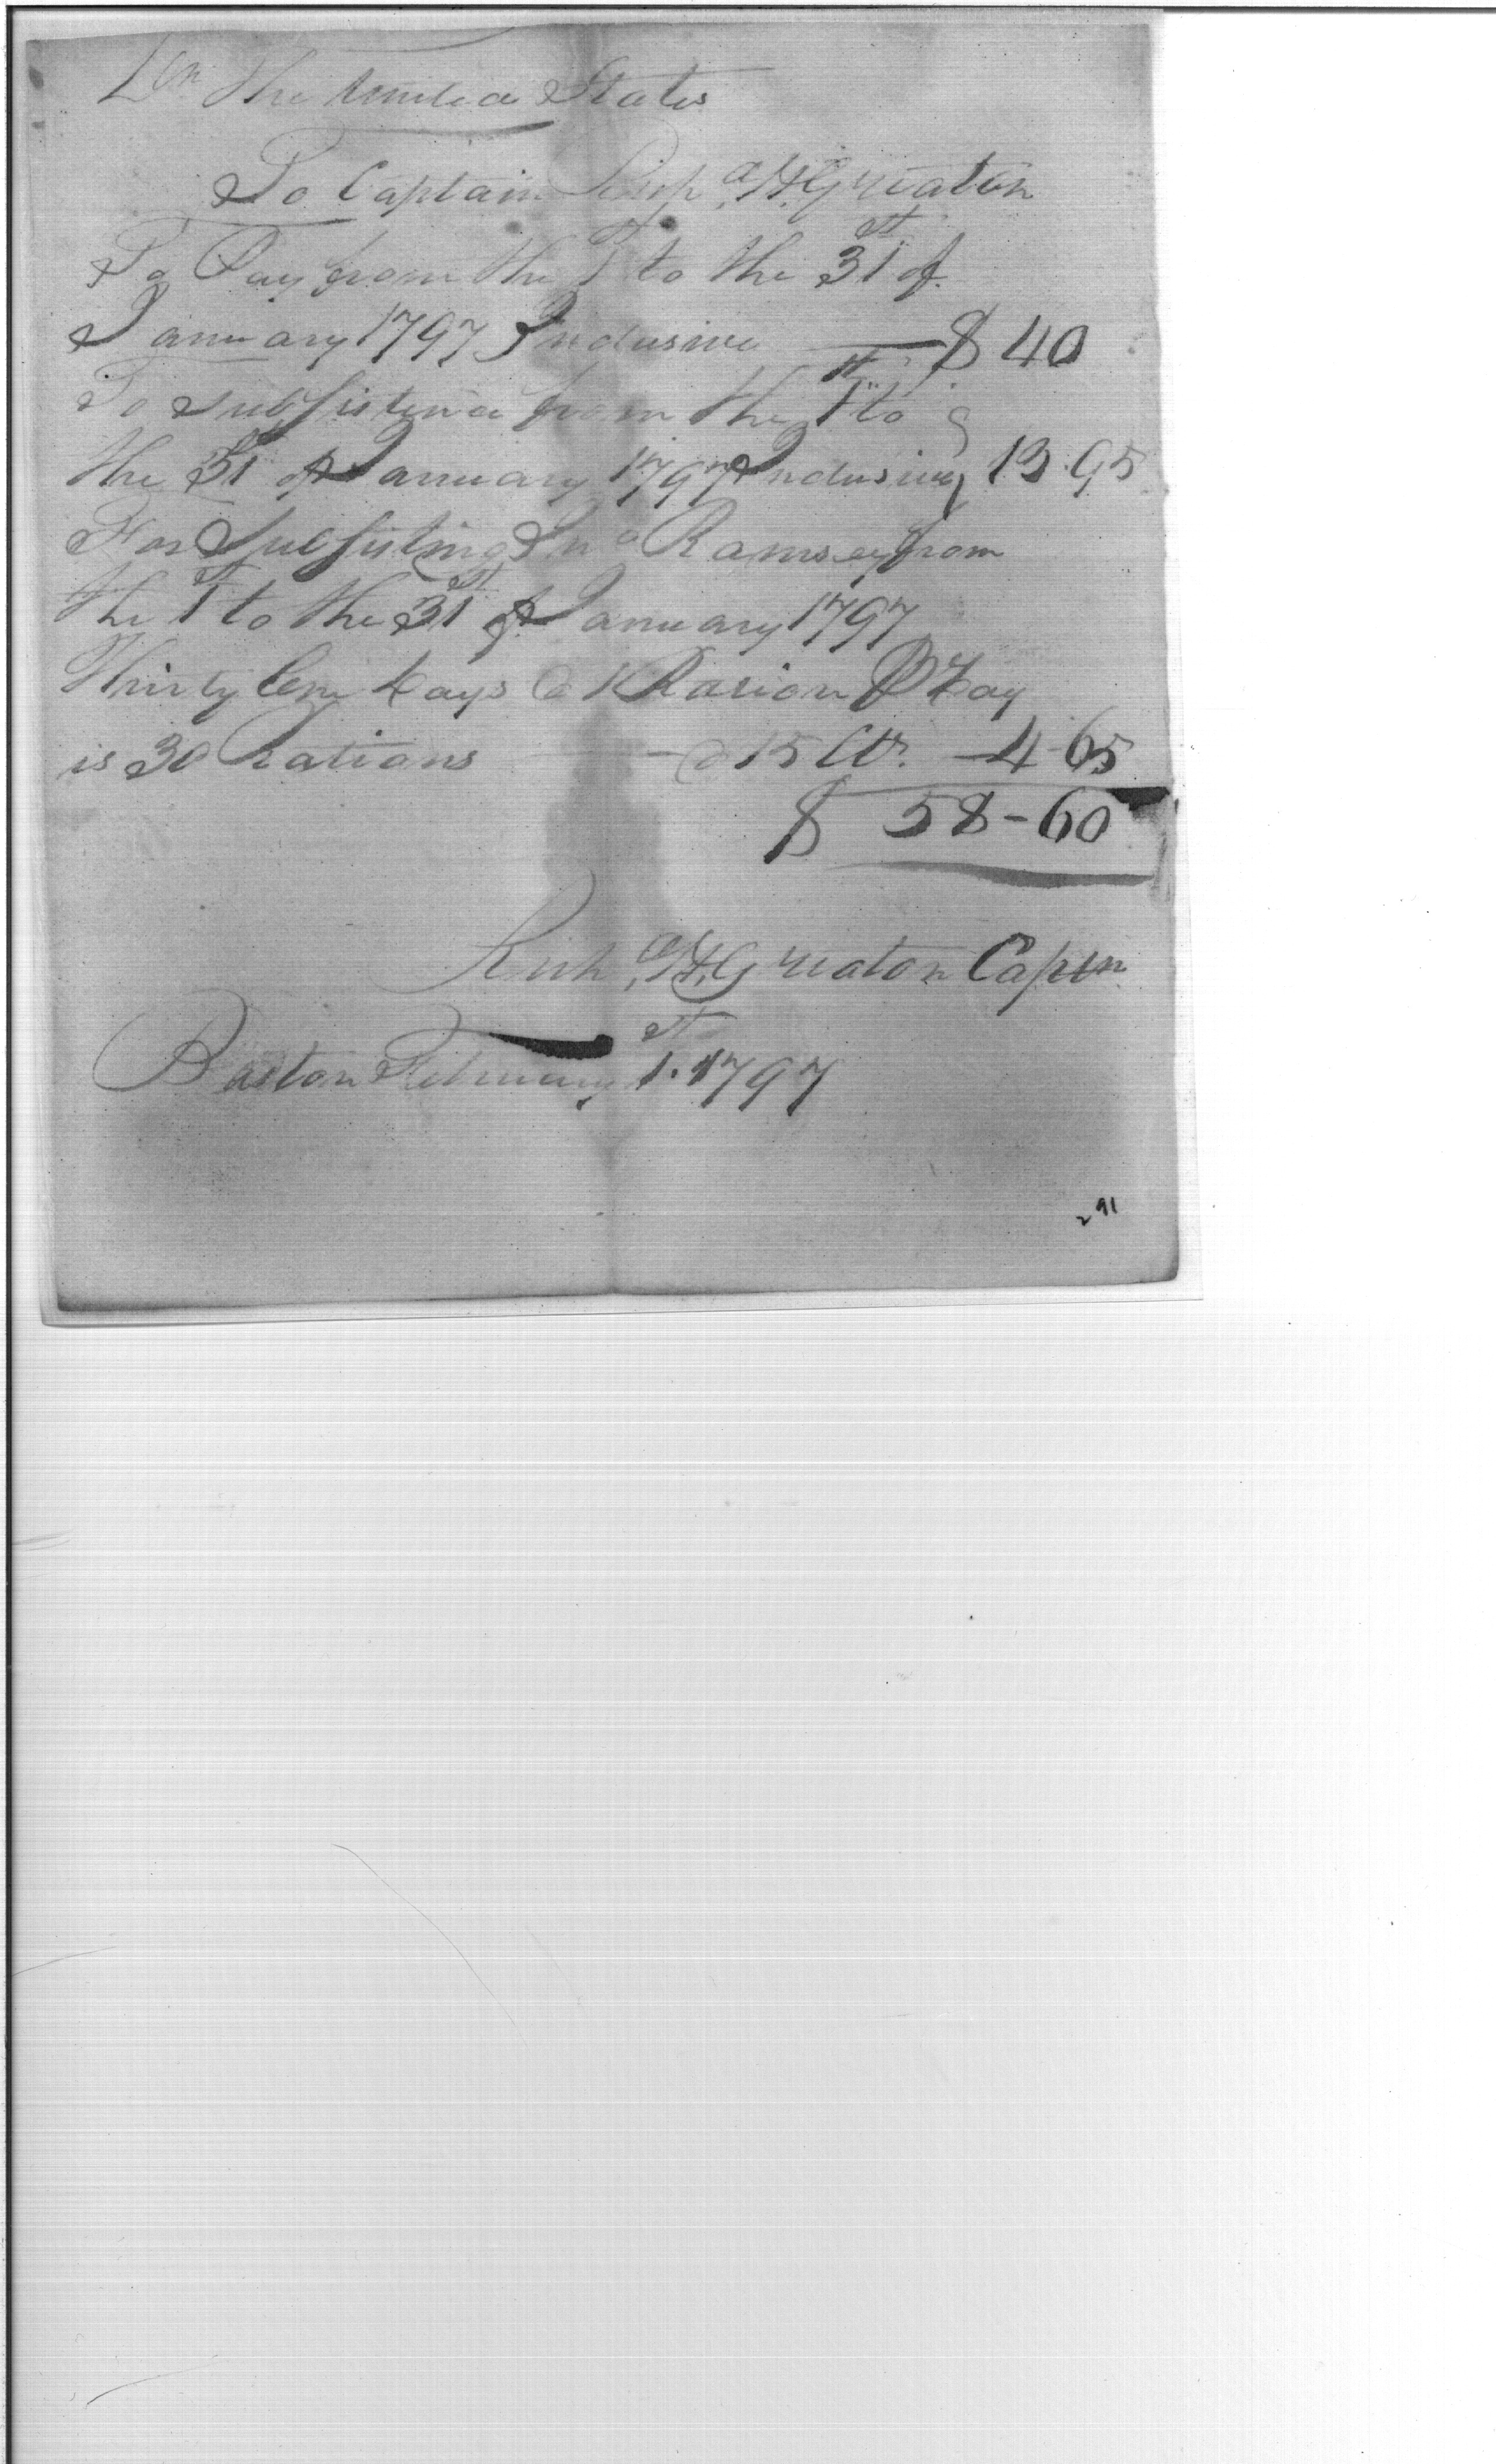 Dr. The United States
To Captain Rich,d H, Greaton
To Pay from the 1st to the 31st of
January 1797 Inclusive — $ 40
To Subsistence from the 1st to
the 31st of January 1797 Inclusive 13.95
For Subsisting Jno Ramsey from
the 1st to the 31st of January 1797
Thirty One Days @ 1 Rasion P Day
is 30 Rations — @ 15 Cts. — 4-65
$ 58-60
Rich,d H, Greaton Captn
Boston February 1st. 1797
291